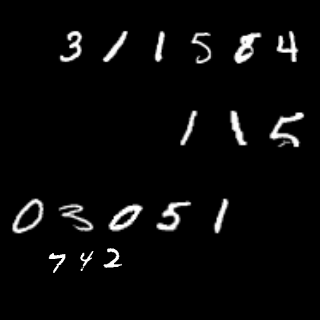 311584
115
03051
742